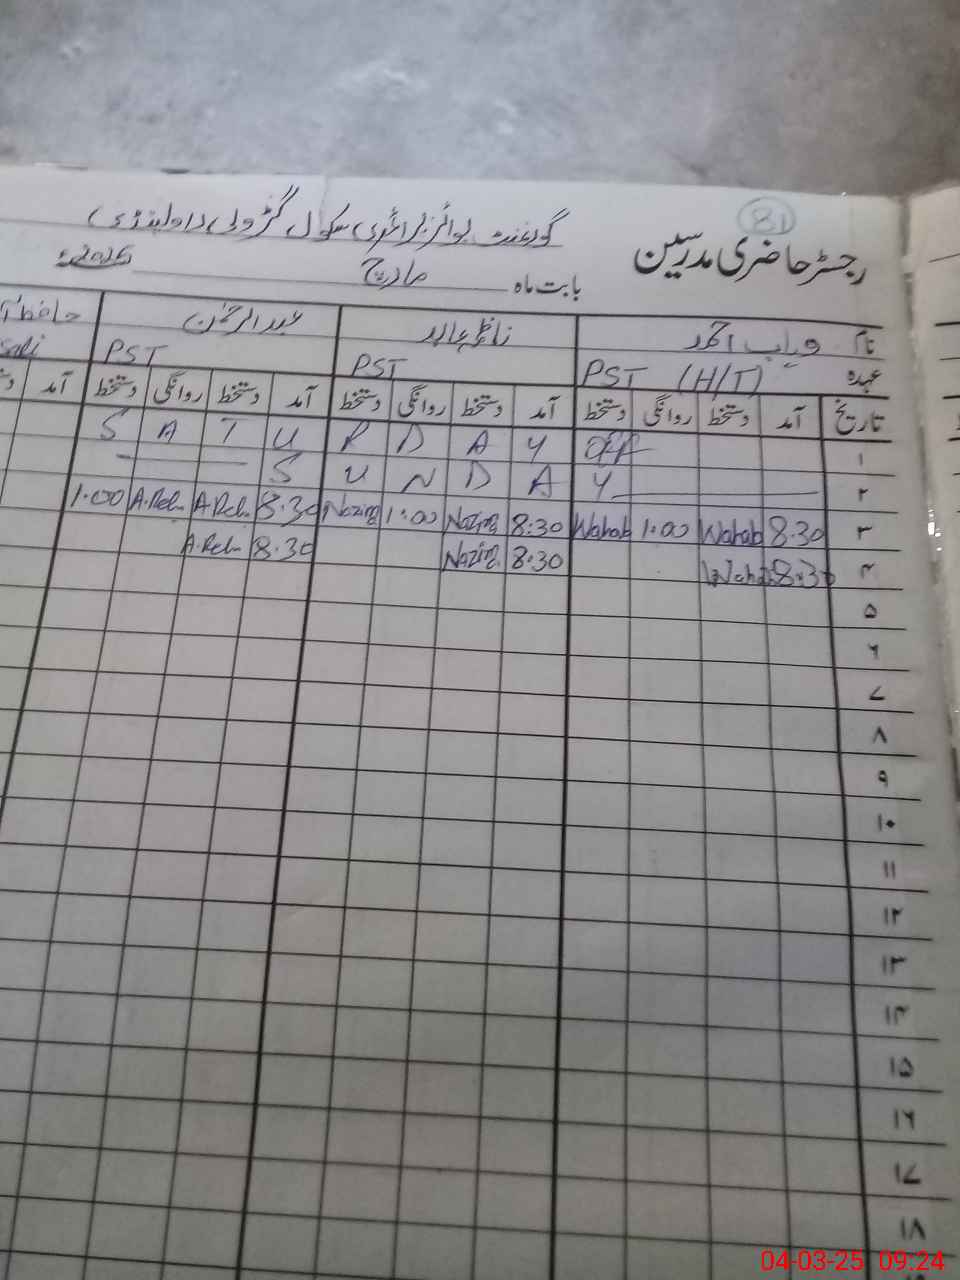 81
رجسٹر حاضری مدرسین
گورنمنٹ بوائز پرائمری سکول گنڑولی راولپنڈی
بابت ماہ مارچ 2025ء
نام وہاب احمد عبدالرحمٰن حافظ
عہدہ PST (H/T) PST PST
تاریخ آمد دستخط روانگی دستخط آمد دستخط روانگی دستخط آمد دستخط روانگی دستخط آمد
۱ S A T U R D A Y OFF
۲ S U N D A Y
۳ 8:30 Wahab 1:00 Wahab 8:30 Nazim 1:00 Nazim 8:30 A.Reh A.Reh 1:00
۴ 8:30 Wahab 8:30 Nazim 8:30 A.Reh
۵
۶
۷
۸
۹
۱۰
۱۱
۱۲
۱۳
۱۴
۱۵
۱۶
۱۷
۱۸
04-03-25 09:24